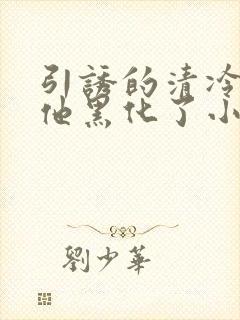 引誘的清冷
他黑化了小
劉少華